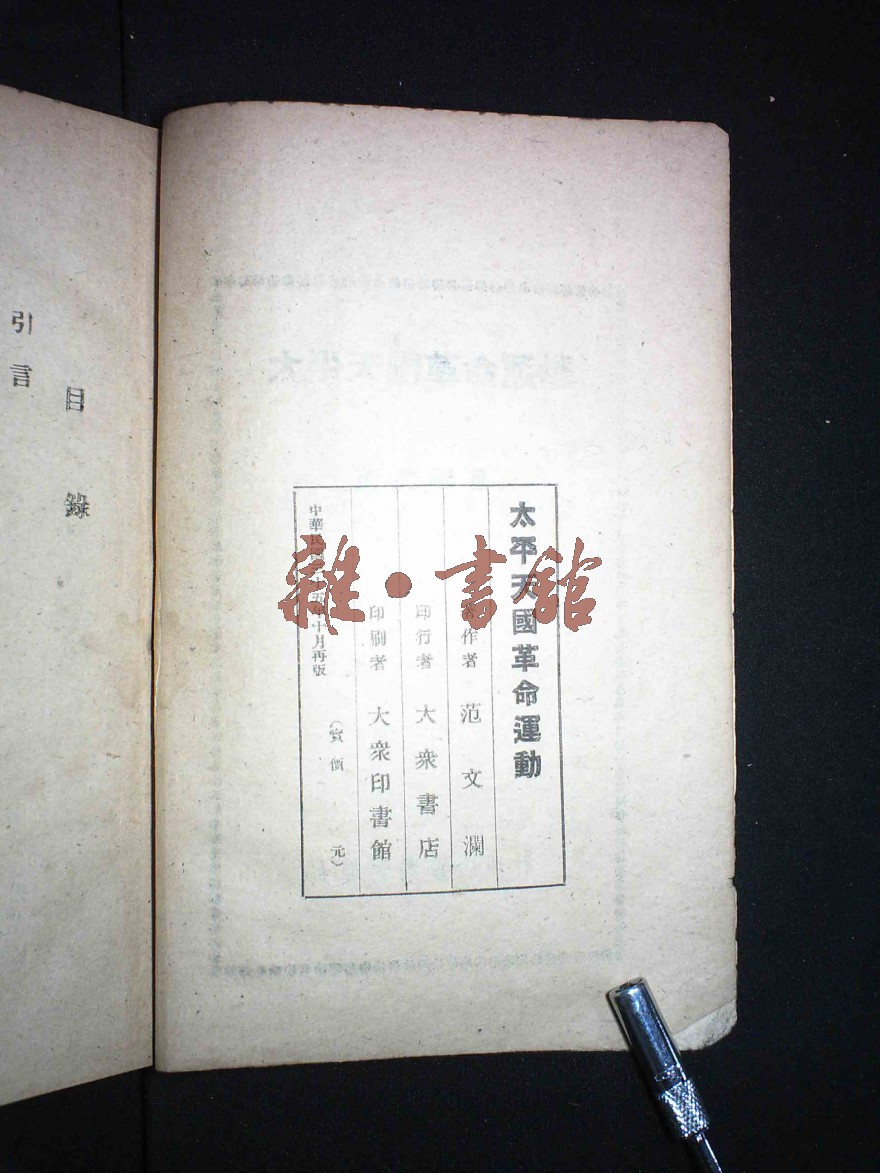 太平天國革命運動
著作者 范文瀾
印行者 大衆書店
印刷者 大衆印書館
中華民國三十五年十月再版 (實價 元)
目錄
引言
雜·書館